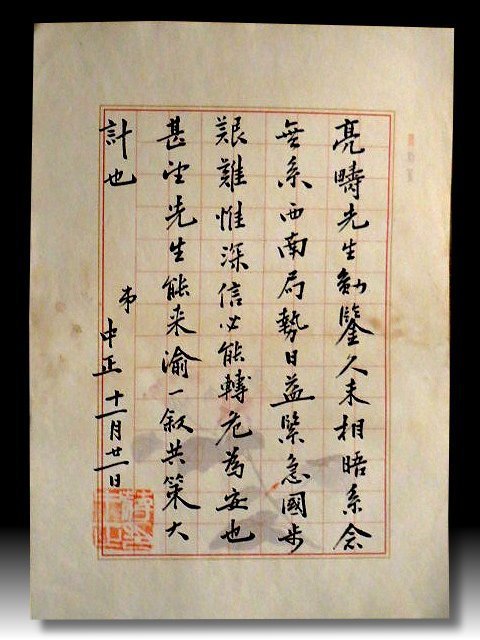 亮疇先生勛鑒久未相晤系念
無系西南局勢日益緊急國步
艱難惟深信必能轉危為安也
甚望先生能来渝一叙共策大
計也
弟
中正 十一月廿一日